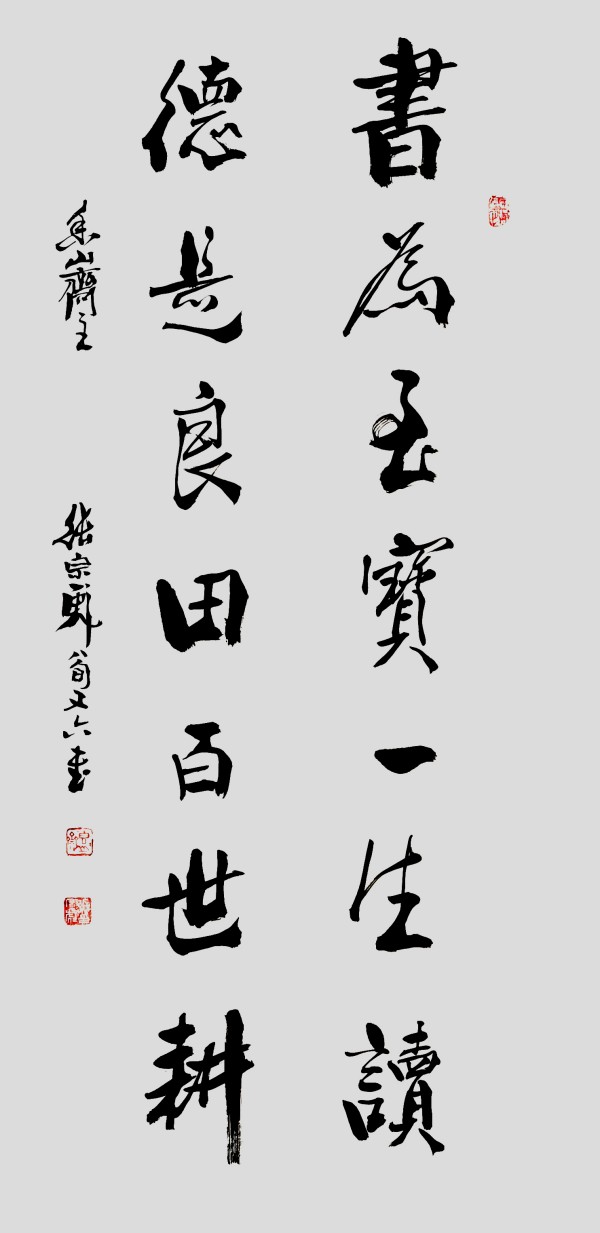 書為至寶一生讀
德是良田百世耕
香山齋主
張宗彪八旬又六書